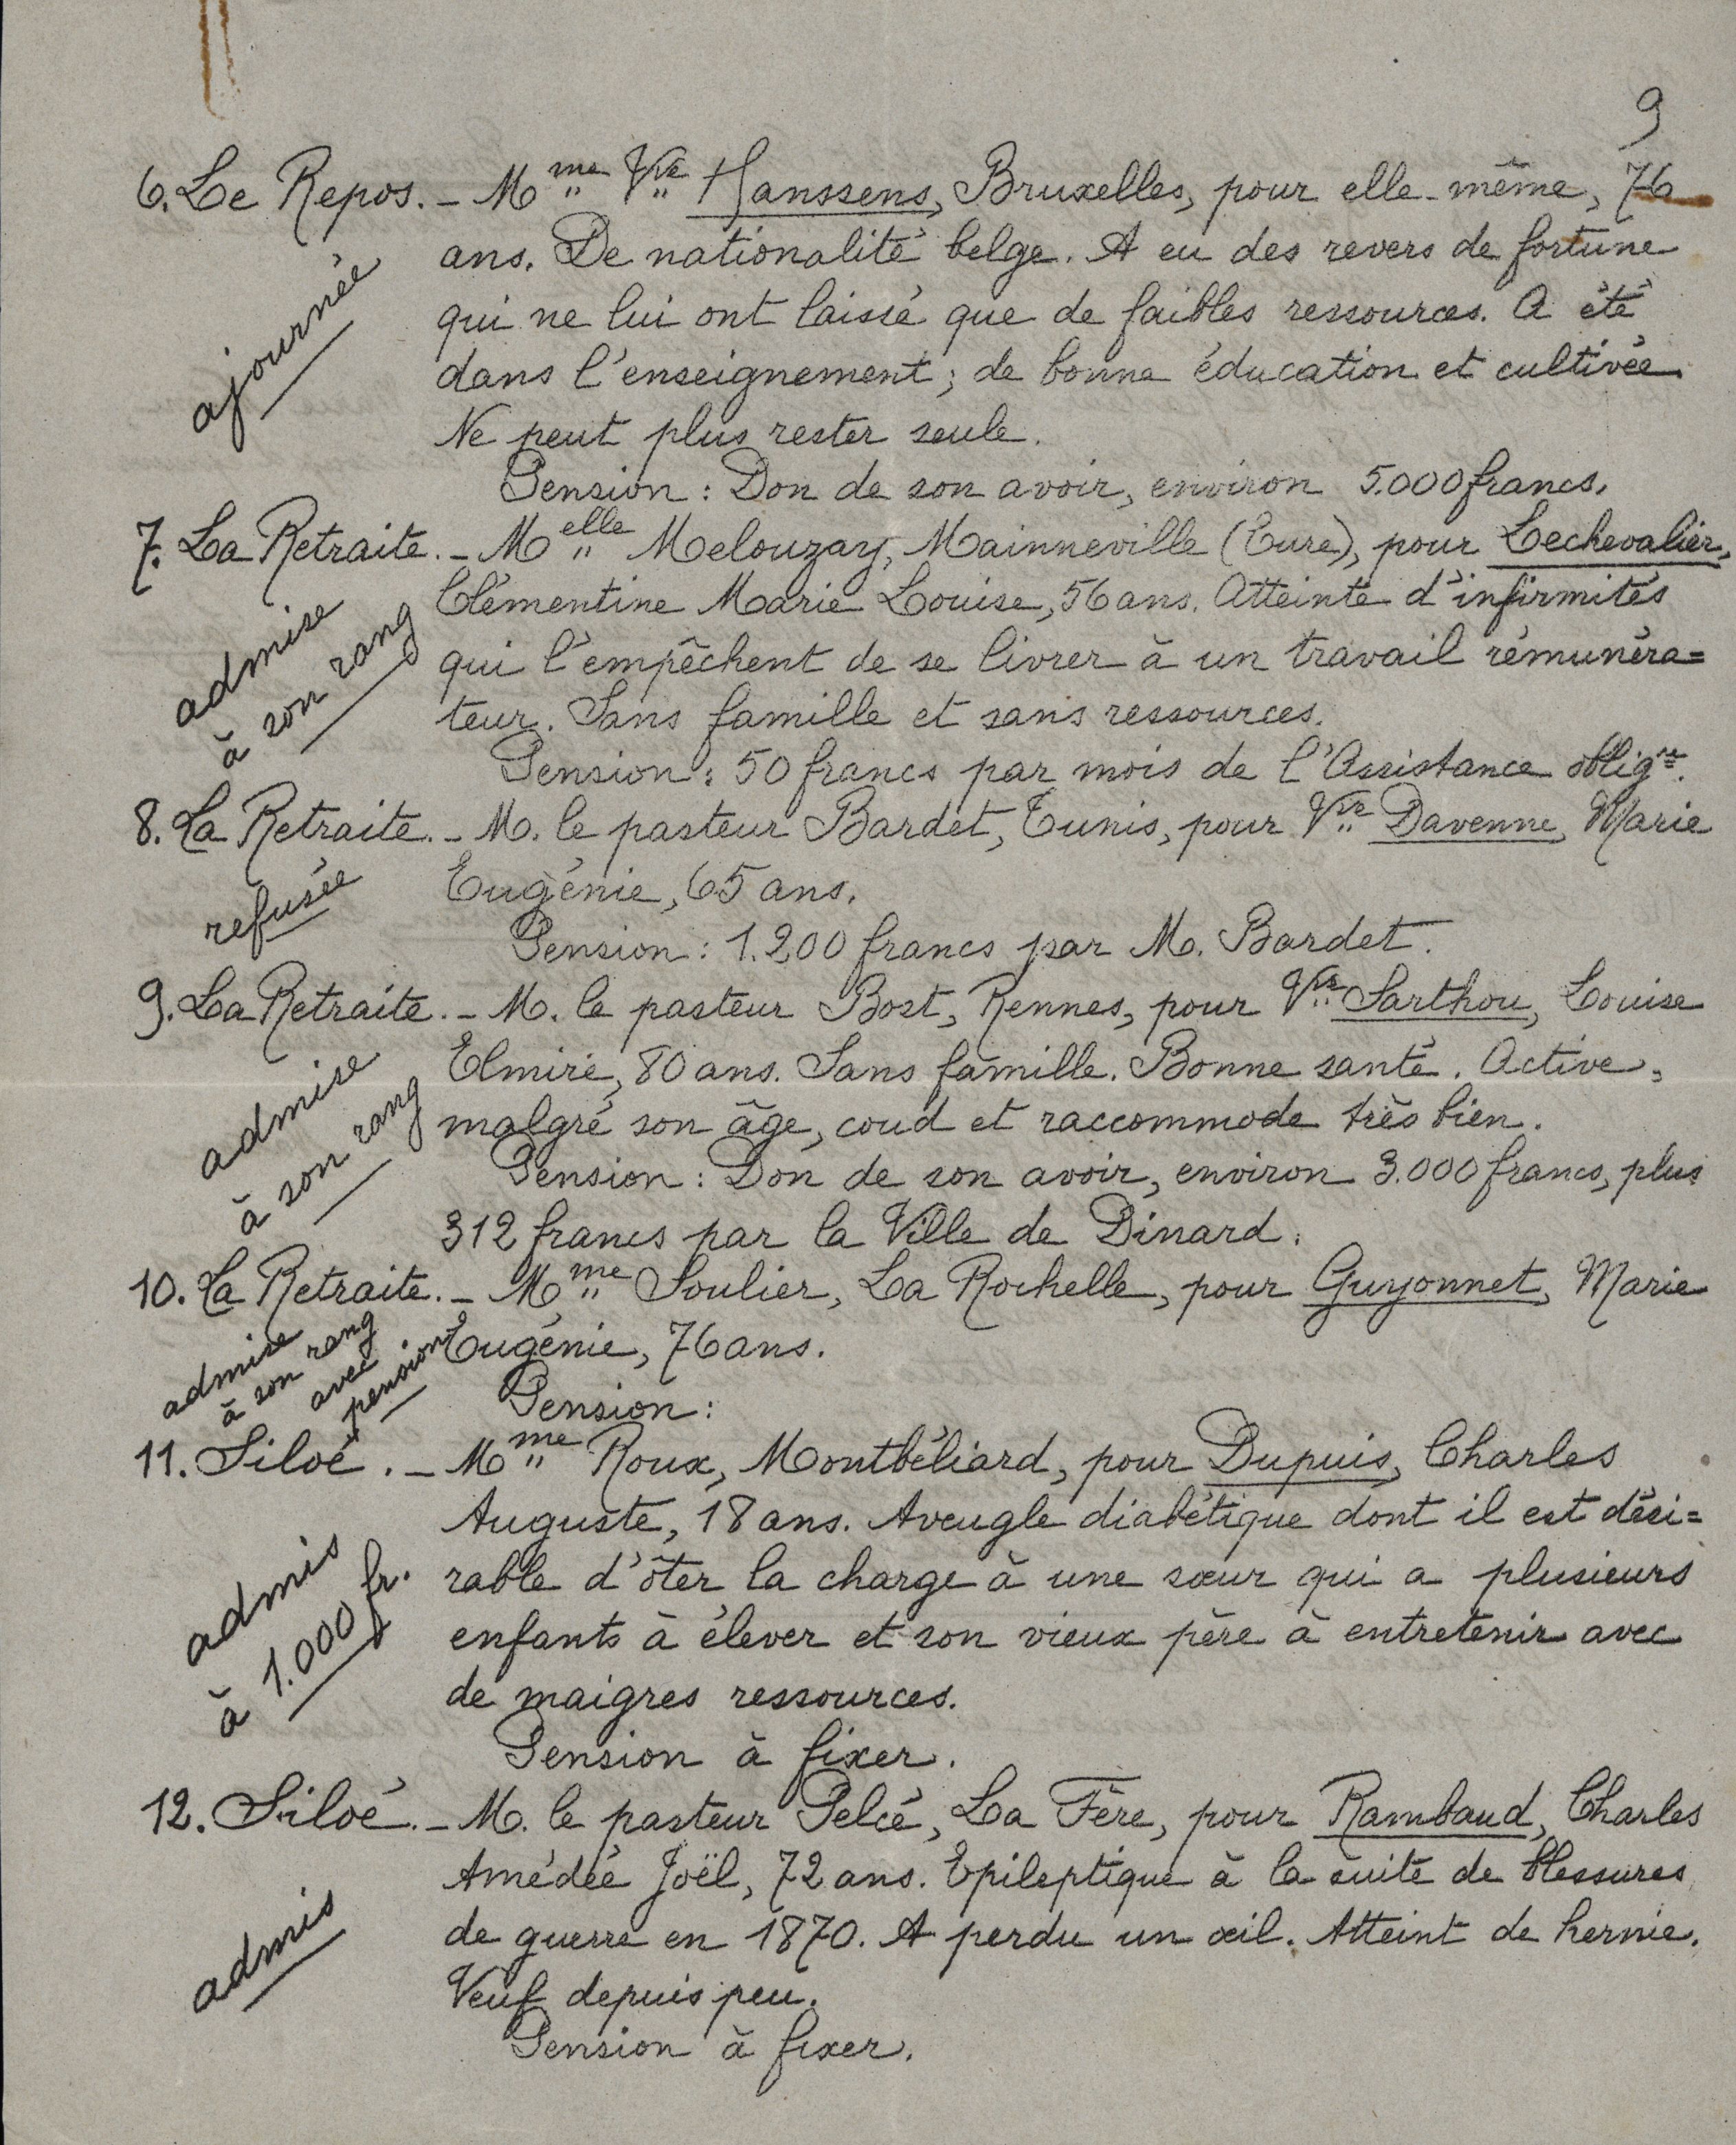 9
6. Le Repos. - Mme Vve Hanssens, Bruxelles, pour elle-même, 76
ans. De nationalité belge. A eu des revers de fortune
ajournée
qui ne lui ont laissé que de faibles ressources. A été
dans l'enseignement; de bonne éducation et cultivée.
Ne peut plus rester seule.
Pension : Don de son avoir, environ 5.000 francs.
7. La Retraite. - Melle Melouzay, Mainneville (Eure), pour Lechevalier,
Clémentine Marie Louise, 56 ans. Atteinte d'infirmités
admise
à son rang
qui l'empêchent de se livrer à un travail rémunéra=
teur. Sans famille et sans ressources.
Pension : 50 francs par mois de l'Assistance obligre.
8. La Retraite. - M. le pasteur Bardet, Tunis, pour Vve Davenne, Marie
refusée
Eugénie, 65 ans.
Pension : 1.200 francs par M. Bardet.
9. La Retraite. - M. le pasteur Bost, Rennes, pour Vve Sarthou, Louise
Elmire, 80 ans. Sans famille. Bonne santé. Active,
admise
à son rang
malgré son âge, coud et raccommode très bien.
Pension : Don de son avoir, environ 3.000 francs, plus
312 francs par la Ville de Dinard.
10. La Retraite. - Mme Soulier, La Rochelle, pour Guyonnet, Marie
admise
à son rang
avec
pension
Eugénie, 76 ans.
Pension :
11. Siloé. - Mme Roux, Montbéliard, pour Dupuis, Charles
Auguste, 18 ans. Aveugle diabétique dont il est dési=
admis
à 1.000 fr.
rable d'ôter la charge à une sœur qui a plusieurs
enfants à élever et son vieux père à entretenir avec
de maigres ressources.
Pension à fixer.
12. Siloé. - M. le pasteur Pelcé, La Fère, pour Rambaud, Charles
Amédée Joël, 72 ans. Epileptique à la suite de blessures
admis
de guerre en 1870. A perdu un œil. Atteint de hernie.
Veuf depuis peu.
Pension à fixer.